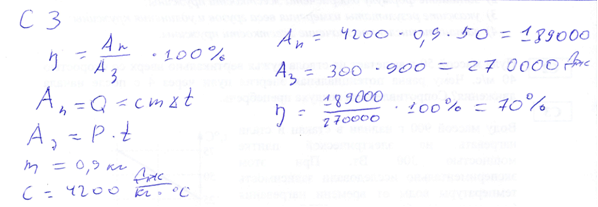 С 3
η = Aп / Aз · 100%
Aп = Q = cmΔt
Aз = P · t
m = 0,9 кг
C = 4200 Дж / кг · °C
Aп = 4200 · 0,9 · 50 = 189000
Aз = 300 · 900 = 270000 Дж
η = 189000 / 270000 · 100% = 70%